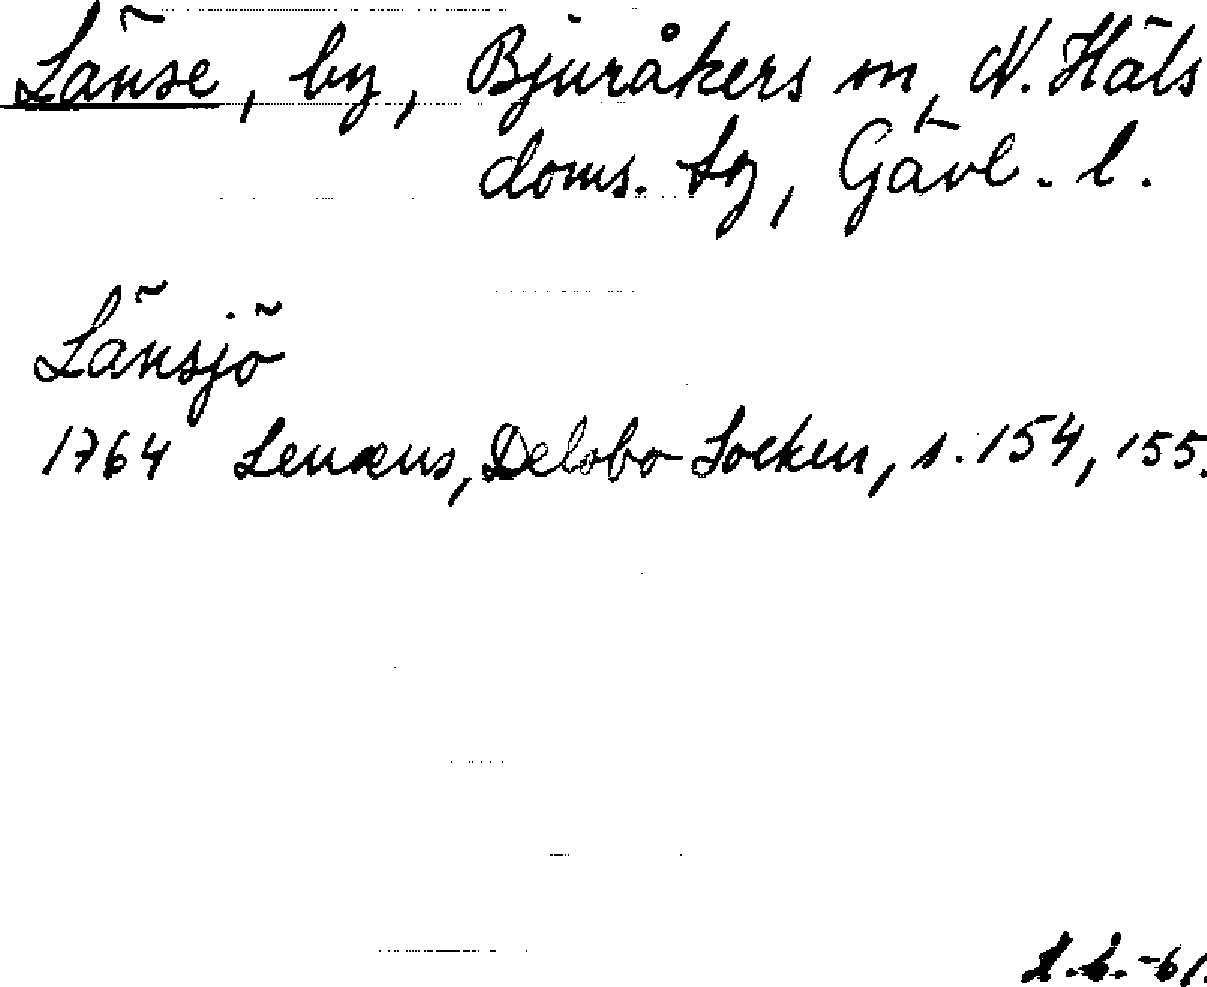 Länse, by, Bjuråkers sn, N. Häls
doms. sg, Gävl. l.
Länsjö
1764 Lenæus, Delsbo Socken, s. 154, 155.
-61.